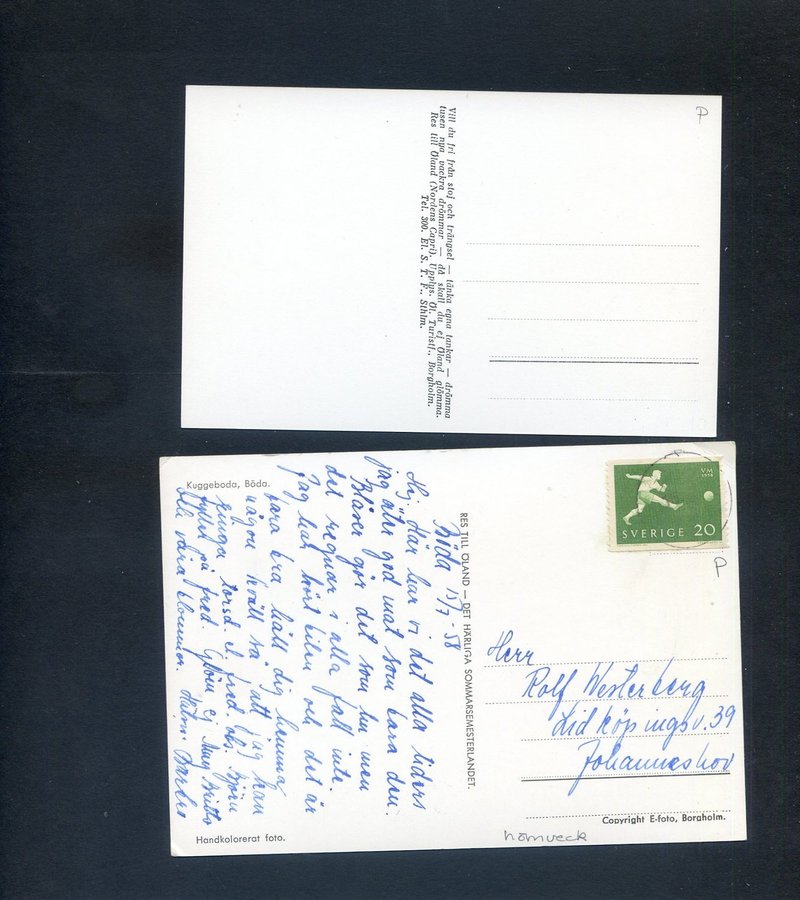 P
Vill du fri från stoj och trängsel — tänka egna tankar — drömma
tusen nya vackra drömmar — då skall du ej Öland glömma.
Res till Öland (Nordens Capri). Upplys. Öl. Turistf., Borgholm.
Tel. 300. El. S. T. F., Sthlm.
Kuggeboda, Böda.
VM
1958
SVERIGE 20
P
RES TILL ÖLAND — DET HÄRLIGA SOMMARSEMESTERLANDET.
Böda 15/7-58
Hej. Här har vi det alla tiders
jag äter god mat som bara den.
Blåser gör det som hu men
det regnar i alla fall inte.
Jag har hört bilen och det är
bara bra håll dig hemma
någon kväll så att jag kan
ringa torsd. el. fred. obs. Björn
fyller på fred. Glöm ej May Britts
alla våra blommor. Hälsn.
Herr
Rolf Westerberg
Lidköpingsv. 39
Johanneshov
Copyright E-foto, Borgholm.
Handkolorerat foto.
hörnveck